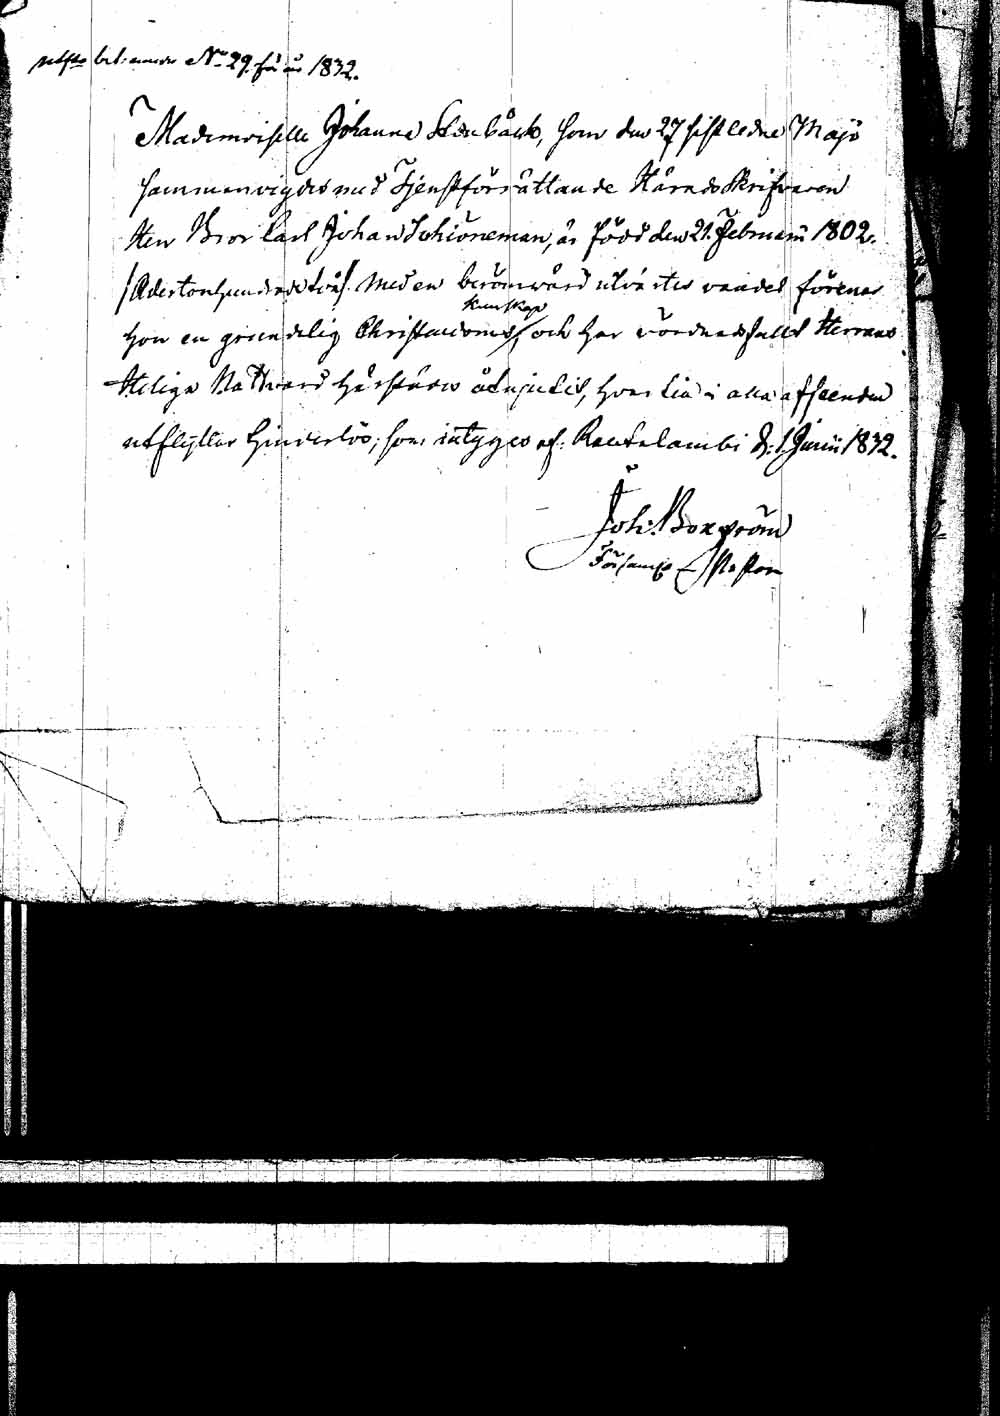 No 29. för år 1832.
Mademoiselle Johanna Stenbäck, som den 27 sistledne Maji
sammanvigdes med Tjenstförrättande Häradsskrifvaren
Herr Bror Carl Johan Schiöneman, är född den 21. Februarii 1802.
/Adertonhundrade två/. Med en berömvärd utvärtes vandel förenar
kunskap
hon en grundelig Christendoms och har vördnadsfullt Herrans
Heliga Nattvard härstädes åtnjutit, hvarifrån i alla afseenden
utflyttar hinderlös; som intygas af. Rautalambi d. 1. Junii 1832.
Joh: Borgström
Församl Pastor